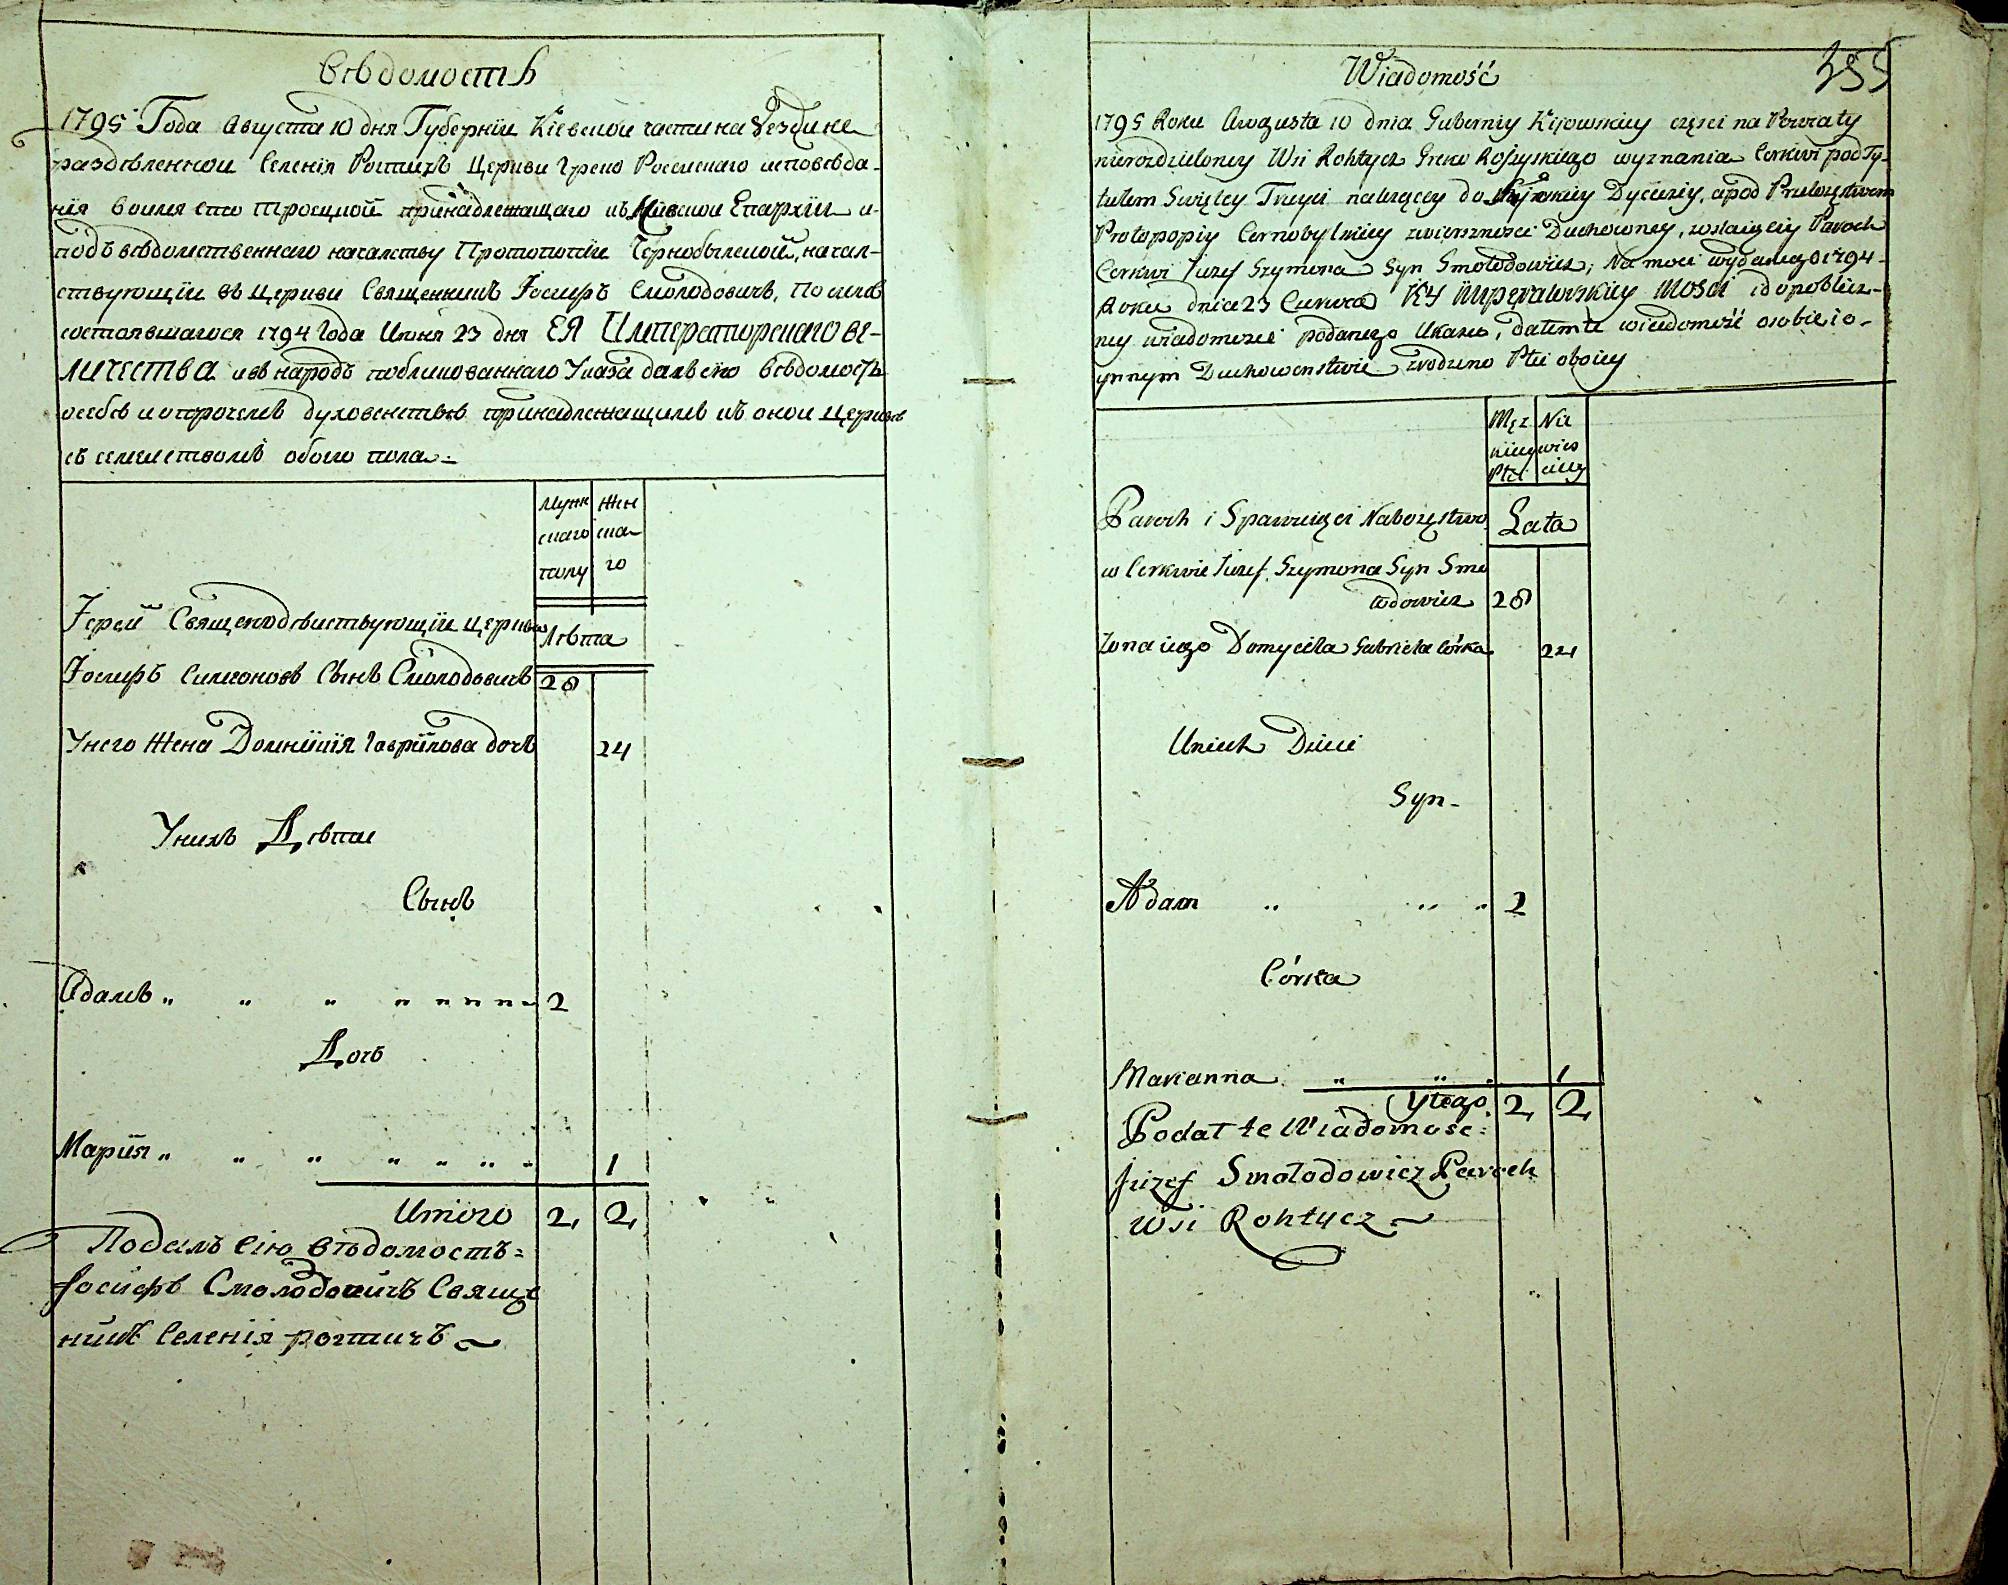 Вѣдомость
1795 Года Августа 10 дня Губернїи Кїевской части на Уезди не
раздѣленной Селенїя Рогтичъ Церкви Греко Россискаго исповѣда-
нїя во имя сто Троецкой принадлежащаго къ Кїевской Епархїи и
подъ вѣдомственнаго началству Протопопїи Чернобылской, начал-
ствующїй въ Церкви Священникъ Іосифъ Смолодовичъ, По силѣ
состоявшагося 1794 Года Июня 23 дня ЕЯ Императорскаго ве-
личества и въ народъ публикованнаго Указа далъ сїю вѣдомость
о себѣ и о прочемъ духовенствѣ принадлежащимъ къ оной Церквѣ
съ семействомъ обоего пола
Муж Жен
скаго ска-
полу го
Іерей Священодѣиствующїй Церкви
Лѣта
Іосифъ Симеоновъ Сынъ Смолодовичъ 28
У него Жена Домникїя Гаврїилова дочъ 24
У нихъ Дѣти
Сынъ
Адамъ „ „ „ „ „ „ „ „ 2
Дочъ
Марїя „ „ „ „ „ „ „ 1
Итого 2, 2,
Подалъ сїю вѣдомостъ =
Іосифъ Смолодовичъ Свяще
никъ Селенїя рогтичъ
355
Wiadomość
1795 Roku Awgusta 10 dnia Guberniy Kijowskiey częsci na Powiaty
nierozdzieloney Wsi Rohtycz Greko Rossyiskiego wyznania Cerkwi pod Ty-
tułem Swiętey Troycy należącey do Kijowskiey Dyeceziy, a pod Przełożęstwem
Protopopiy Czernobylskiey zwierzchnosci Duchowney, zostaiący Paroch
Cerkwi Juzef Szymona Syn Smołodowicz, Na moci wydanego 1794
Roku dnia 23 Czerwca EY Imperatorskiey Mosci i do publicz-
ney wiadomosci podanego Ukazu, dałem tę wiadomość o sobie i o
ynnym Duchowenstwie z rodzino Płci oboiey
Męz Nie
kiey wies
Płci ciey
Paroch i Sprawuięci Nabożęstwo
Lata
w Cerkwie Juzef Szymona Syn Smo
łodowicz 28
Zona iego Domycela Gabriela Córka 24
U nich Dzieci
Syn -
Adam „ „ „ 2
Córka
Marianna „ „ „ 1
Ytego 2, 2,
Podał te Wiadomosc =
Juzef Smołodowicz Paroch
Wsi Rohtycz